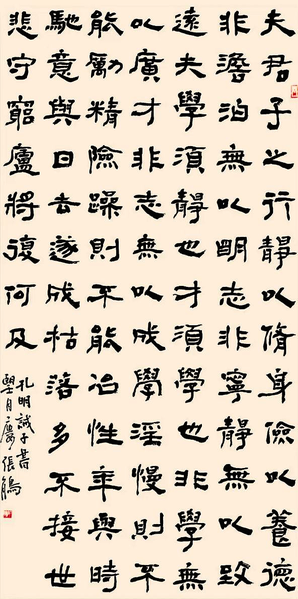 夫君子之行靜以脩身儉以養德
非澹泊無以明志非寧靜無以致
遠夫學須靜也才須學也非學無
以廣才非志無以成學淫慢則不
能勵精險躁則不能冶性年與時
馳意與日去遂成枯落多不接世
悲守窮廬將復何及
孔明誡子書
月張